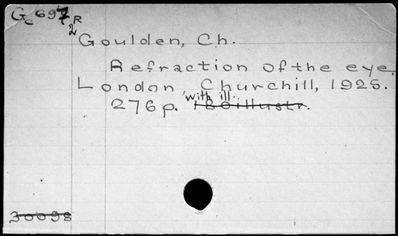 Gc697R
2
Goulden, Ch.
Refraction of the eye.
London Churchill, 1925.
with ill.
276p. 180illustr.
30098